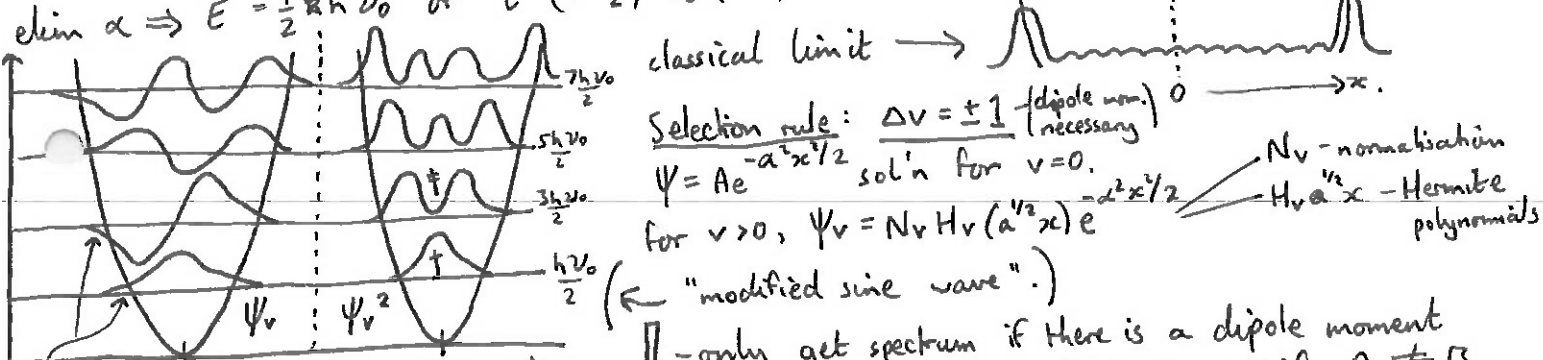 elim α ⇒ E = ½ hν₀
classical limit →
0 → x.
7hν₀/2
5hν₀/2
3hν₀/2
hν₀/2
ψᵥ
ψᵥ²
Selection rule: Δv = ±1 (dipole mom. necessary)
ψ = Ae^(-a²x²/2) sol'n for v=0.
for v>0, ψᵥ = Nᵥ Hᵥ (a^(1/2) x) e^(-α²x²/2)
Nᵥ - normalisation
Hᵥ a^(1/2) x - Hermite
polynomials
(← "modified sine wave".)
- only get spectrum if there is a dipole moment